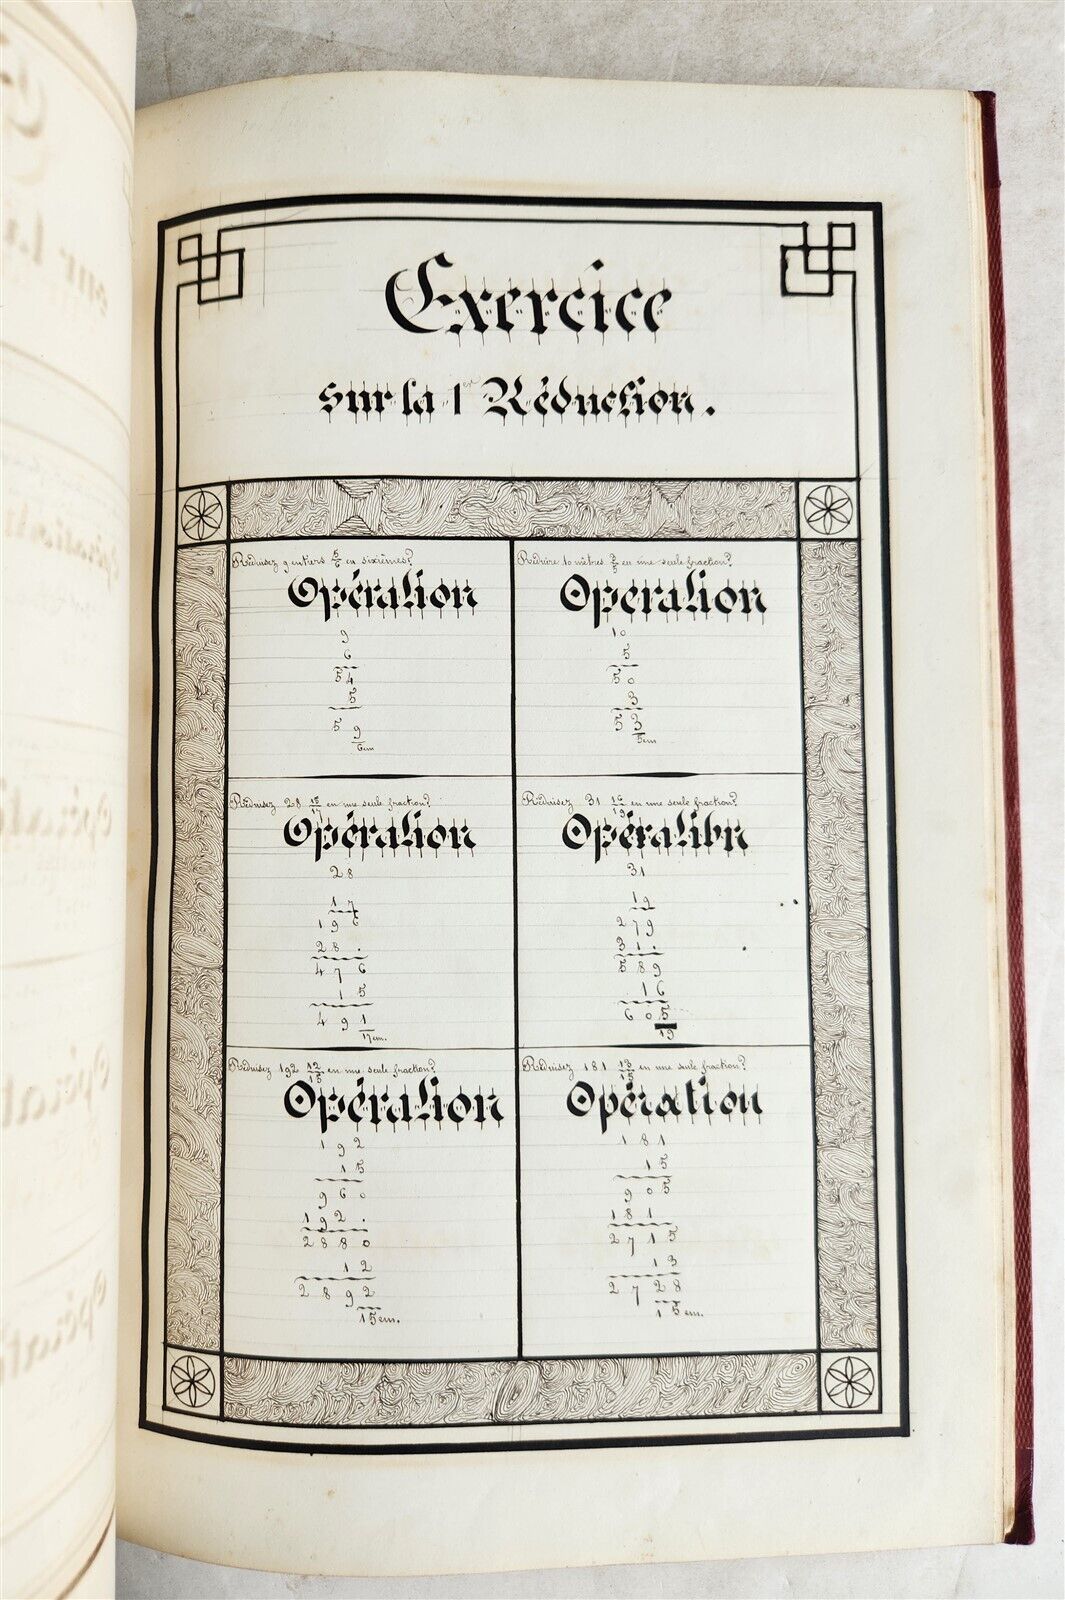 Exercice
sur la 1er Réduction.
Réduisez 9 entiers 5/6 en sixièmes?
Opération
9
6
54
5
59
6em
Réduire 10 mètres 3/5 en une seule fraction?
Operation
10
5
50
3
53
5em
Réduisez 28 15/17 en une seule fraction?
Opération
28
17
196
28.
476
15
491
17em.
Réduisez 31 16/19 en une seule fraction?
Opération
31
19
279
31.
589
16
605
19
Réduisez 192 12/15 en une seule fraction?
Opération
192
15
960
192.
2880
12
2892
15em.
Réduisez 181 13/15 en une seule fraction?
Opération
181
15
905
181
2715
13
2728
15em.